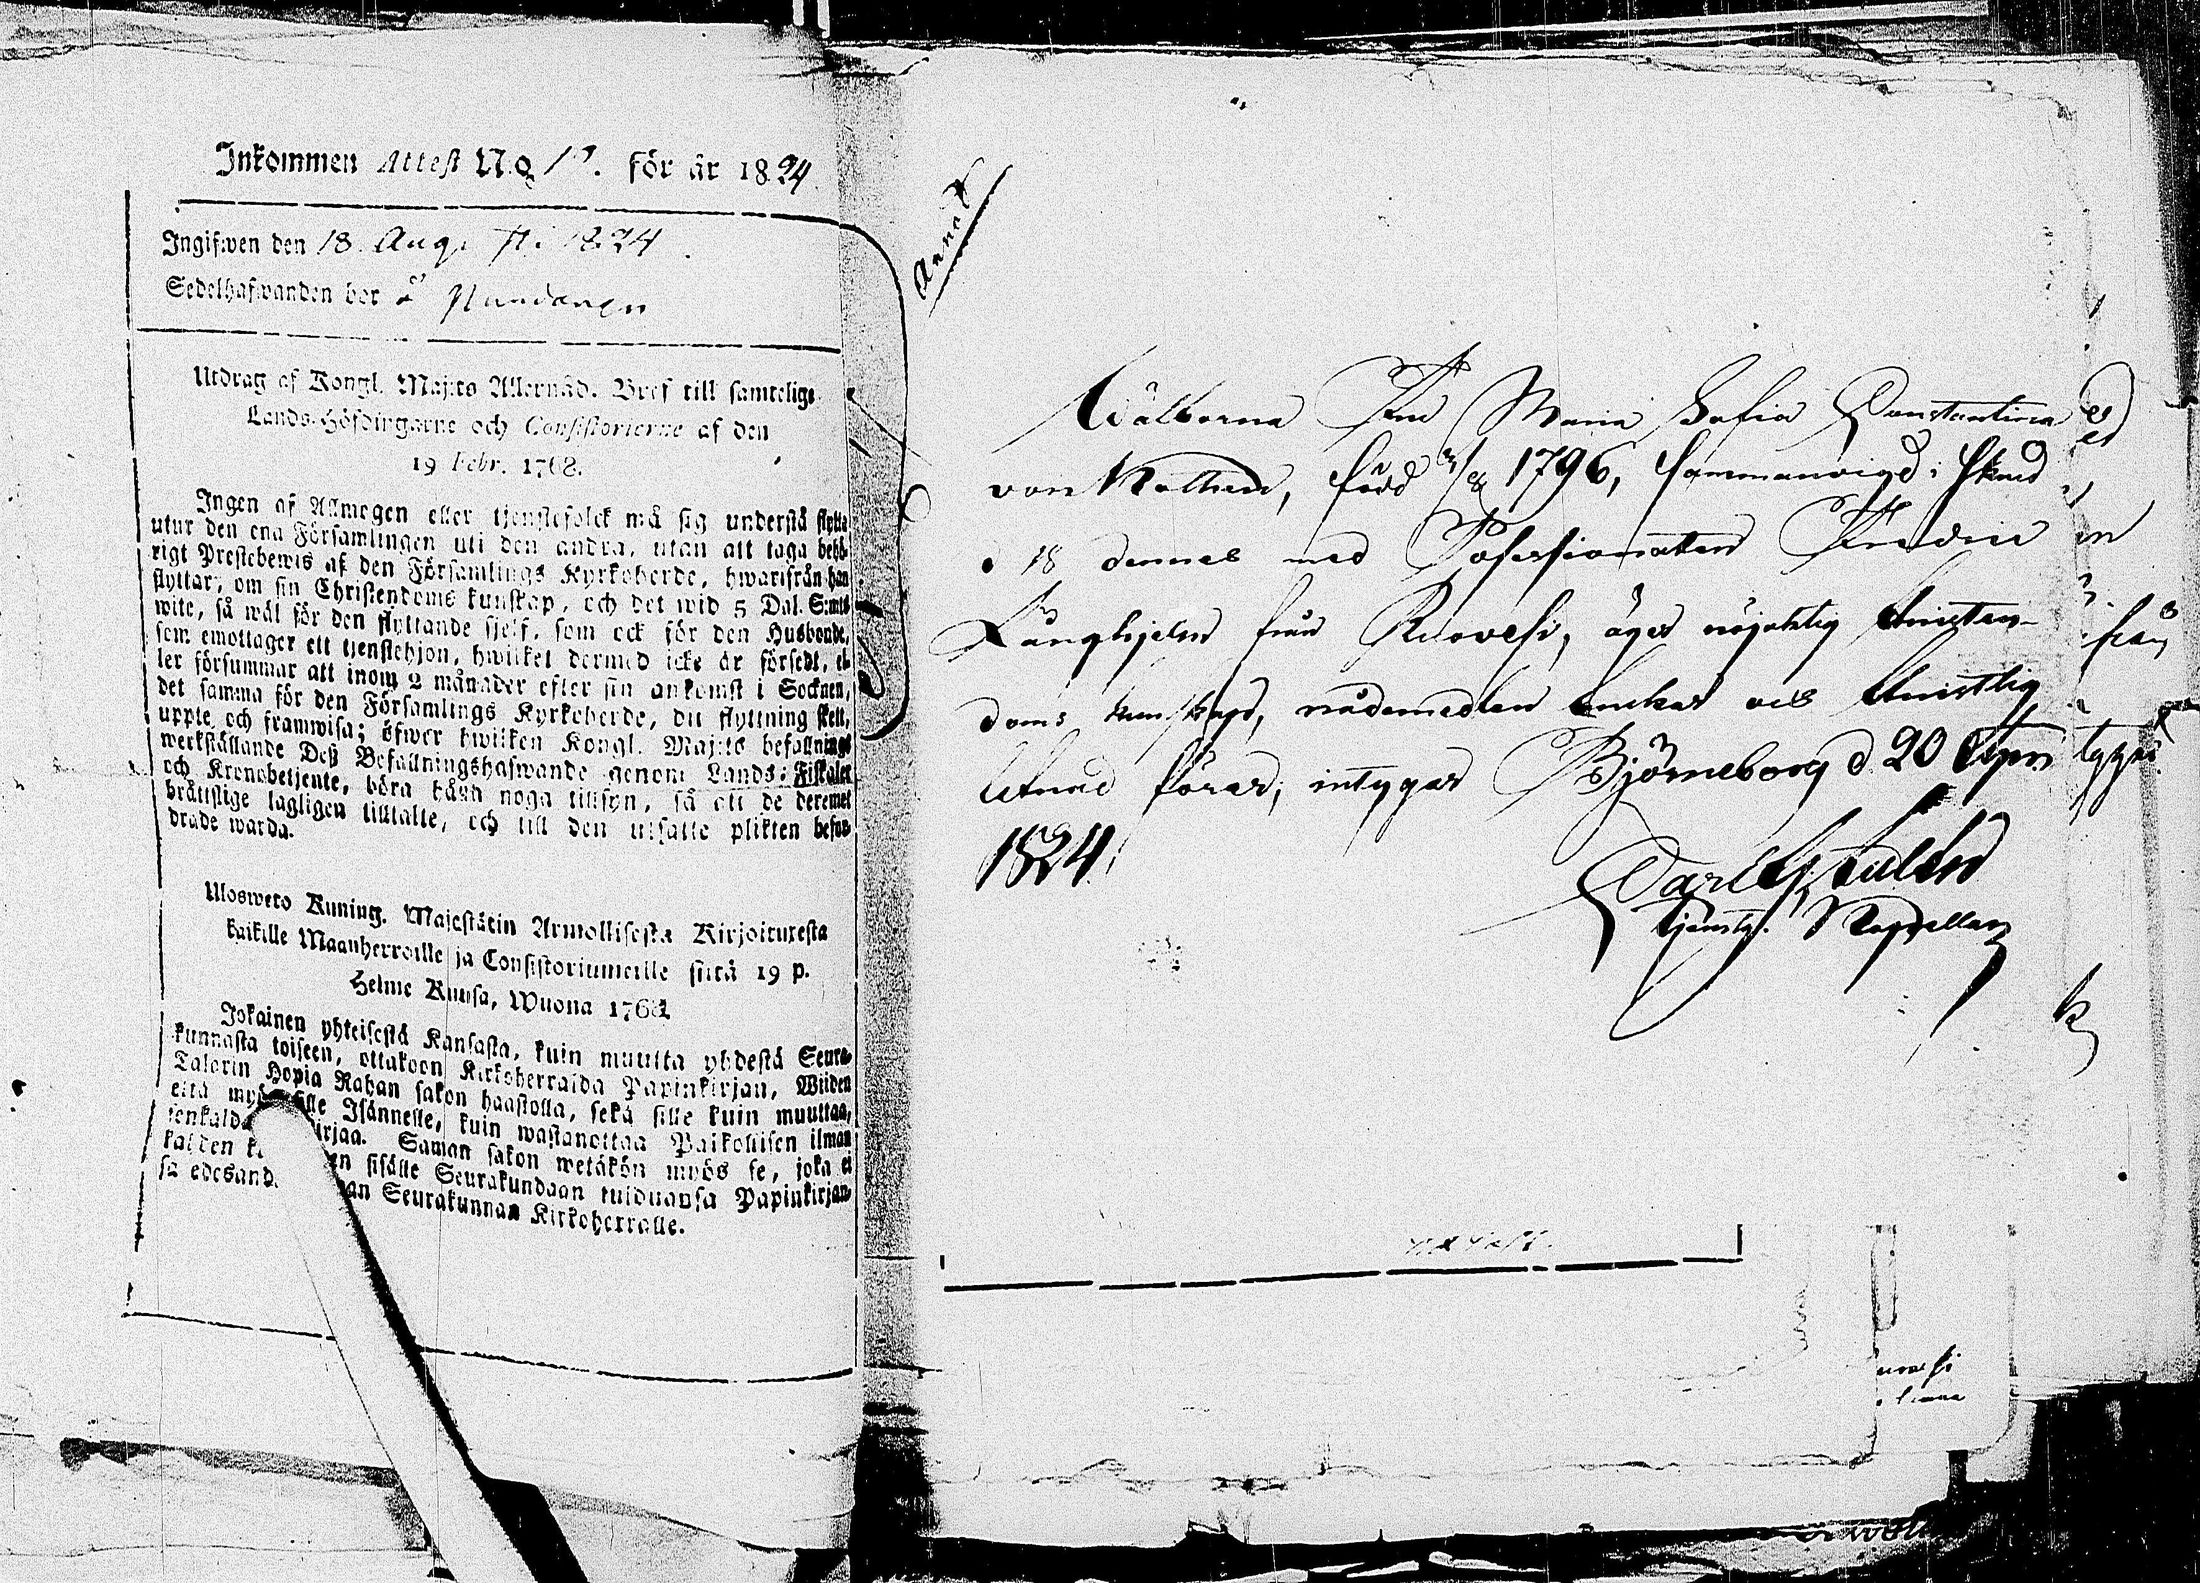 Inkommen Attest N:o 1 . för år 1824
Ingifwen den 18. Augusti 1824.
Sedelhafwanden bor å
Utdrag af Kongl. Maj:ts Allernåd. Bref till samtelige
Lands-Höfdingarne och Consistorierne af den
19 Febr. 1768.
Ingen af Allmogen eller tjenstefolck må sig understå flytta
utur den ena Församlingen uti den andra, utan att taga behö-
rigt Prestebewis af den Församlings Kyrkoherde, hwarifrån han
flyttar, om sin Christendoms kunskap, och det wid 5 Dal. S:mts
wite, så wäl för den flyttande sjelf, som ock för den Husbonde,
som emottager ett tjenstehjon, hwilket dermed icke är försedt, el-
ler försummar att inom 2 månader efter sin ankomst i Socknen,
det samma för den Församlings Kyrkoherde, dit flyttning skett,
uppte och framwisa; öfwer hwilken Kongl. Maj:ts befallnings
werkställande Deß Befallningshafwande genom Lands-Fiskaler
och Kronobetjente, böra hafwa noga tillsyn, så att de deremot
bråttslige lagligen tilltalte, och till den utsatte plikten befor-
drade warda.
Ulosweto Kuning. Majestätin Armollisesta Kirjoituxesta
kaikille Maanherroille ja Consistoriumeille siitä 19 p.
Helme Kuusa, Wuona 1768.
Jokainen yhteisestä Kansasta, kuin muutta yhdestä Seura-
kunnasta toiseen, ottakoon Kirkoherralda Papinkirjan, Wiiden
Talorin Hopia Rahan sakon haastolla, sekä sille kuin muuttaa,
että myös sille Isännelle, kuin wastanottaa Paikollisen ilman
senkalda kirjaa. Saman sakon wetäkön myös se, joka ei
kahden k en sisälle Seurakundaan tulduansa Papinkirjan-
sa edesand an Seurakunnan Kirkoherralle.
Annat
Wälborna Fru Maria Sofia Constantina
von Kothen, född 1796, sammanvigd i Stad
d 18 dennes med Possessionaten Fredric
Långhjelm från Ruovesi, äger nöjaktig Christen-
doms kunskap, nådemedlen brukar och Christlig
lefnad förer, intygar Björneborg d. 20 Apr.
1824.
Carl
tjenstg. Kapellan
från